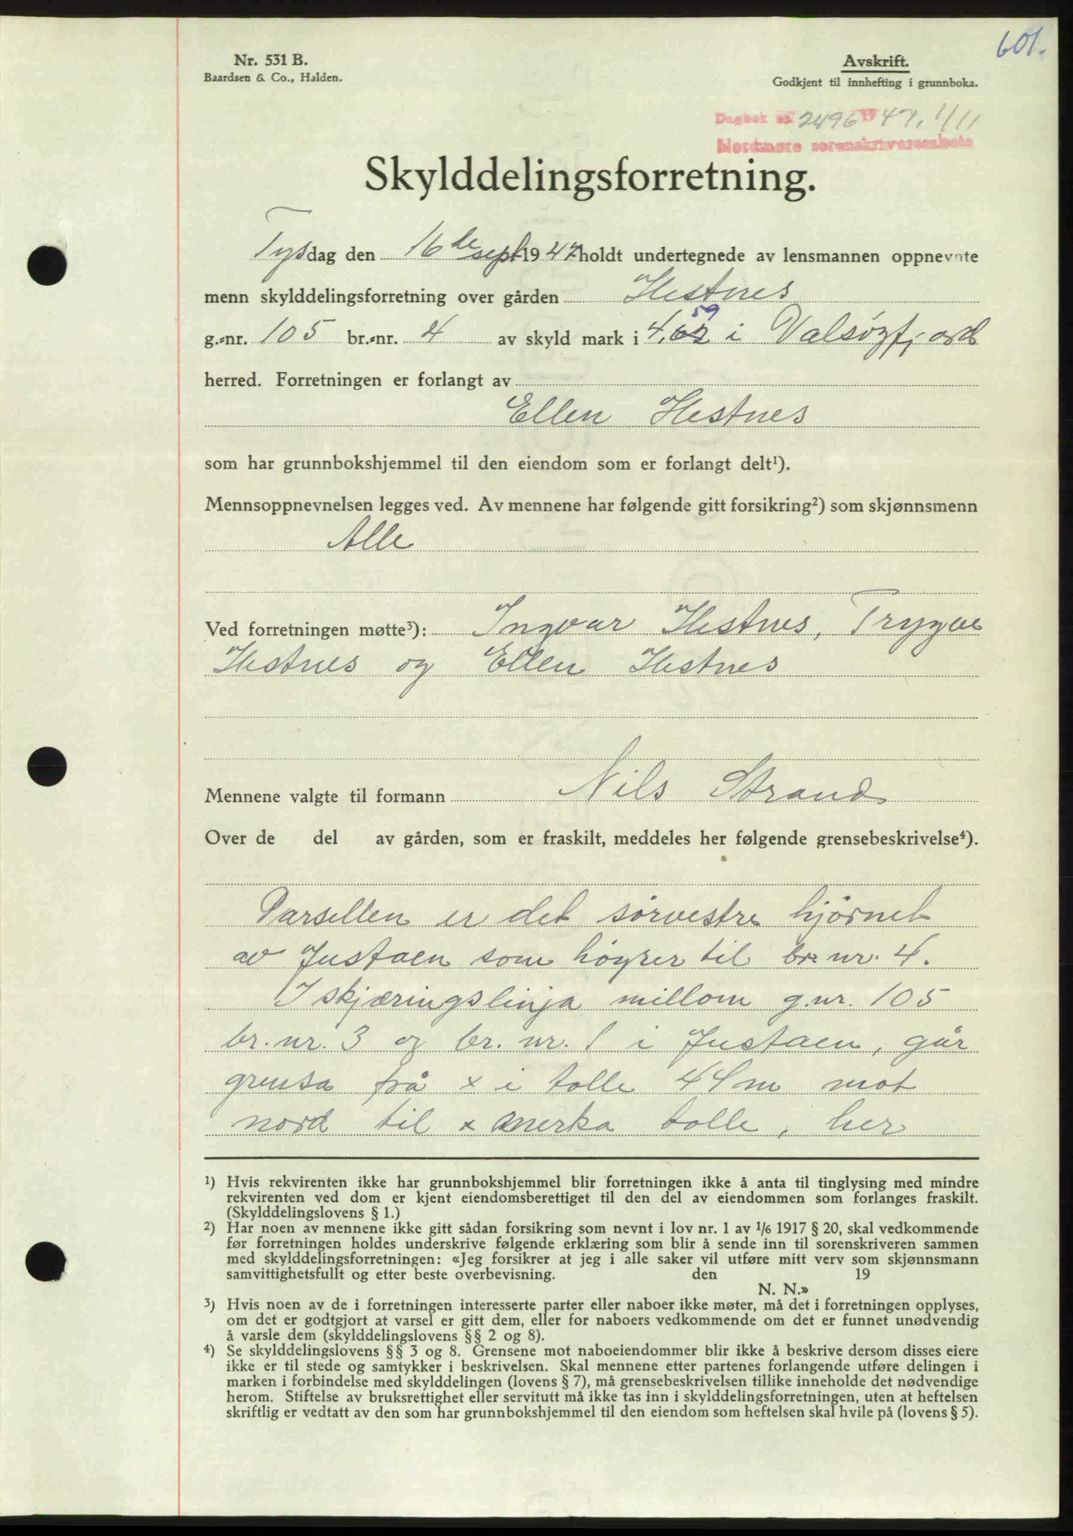 601.
Nr. 531 B.
Baardsen & Co., Halden.
Avskrift.
Godkjent til innhefting i grunnboka.
Dagbok nr. 2496 19 47, 1/11
Nordmøre sorenskriverembete
Skylddelingsforretning.
Tysdag den 16de sept 1947 holdt undertegnede av lensmannen oppnevnte
menn skylddelingsforretning over gården Hestnes
g.-nr. 105 br.-nr. 4 av skyld mark 4,62 59 i Valsøyfjord
herred. Forretningen er forlangt av
Ellen Hestnes
som har grunnbokshjemmel til den eiendom som er forlangt delt¹).
Mennsoppnevnelsen legges ved. Av mennene har følgende gitt forsikring²) som skjønnsmenn
Alle
Ved forretningen møtte³): Ingvar Hestnes, Trygve
Hestnes og Ellen Hestnes
Mennene valgte til formann Nils Strand
Over de del av gården, som er fraskilt, meddeles her følgende grensebeskrivelse⁴).
Parsellen er det sørvestre hjørnet
av Justaen som høyrer til br. nr. 4.
I skjæringslinja millom g.nr. 105
br. nr. 3 og br. nr. 1 i Justaen, går
grensa frå x i tolle 44 m mot
nord til x merka tolle, her
¹) Hvis rekvirenten ikke har grunnbokshjemmel blir forretningen ikke å anta til tinglysing med mindre
rekvirenten ved dom er kjent eiendomsberettiget til den del av eiendommen som forlanges fraskilt.
(Skylddelingslovens § 1.)
²) Har noen av mennene ikke gitt sådan forsikring som nevnt i lov nr. 1 av 1/6 1917 § 20, skal vedkommende
før forretningen holdes underskrive følgende erklæring som blir å sende inn til sorenskriveren sammen
med skylddelingsforretningen: «Jeg forsikrer at jeg i alle saker vil utføre mitt verv som skjønnsmann
samvittighetsfullt og etter beste overbevisning. den 19
N. N.»
³) Hvis noen av de i forretningen interesserte parter eller naboer ikke møter, må det i forretningen opplyses,
om det er godtgjort at varsel er gitt dem, eller for naboers vedkommende om det er funnet unødvendig
å varsle dem (skylddelingslovens §§ 2 og 8).
⁴) Se skylddelingslovens §§ 3 og 8. Grensene mot naboeiendommer blir ikke å beskrive dersom disses eiere
ikke er til stede og samtykker i beskrivelsen. Skal mennene etter partenes forlangende utføre delingen i
marken i forbindelse med skylddelingen (lovens § 7), må grensebeskrivelsen tillike inneholde det nødvendige
herom. Stiftelse av bruksrettighet eller servitutt må ikke tas inn i skylddelingsforretningen, uten at heftelsen
skriftlig er vedtatt av den som har grunnbokshjemmel til den eiendom som heftelsen skal hvile på (lovens § 5).